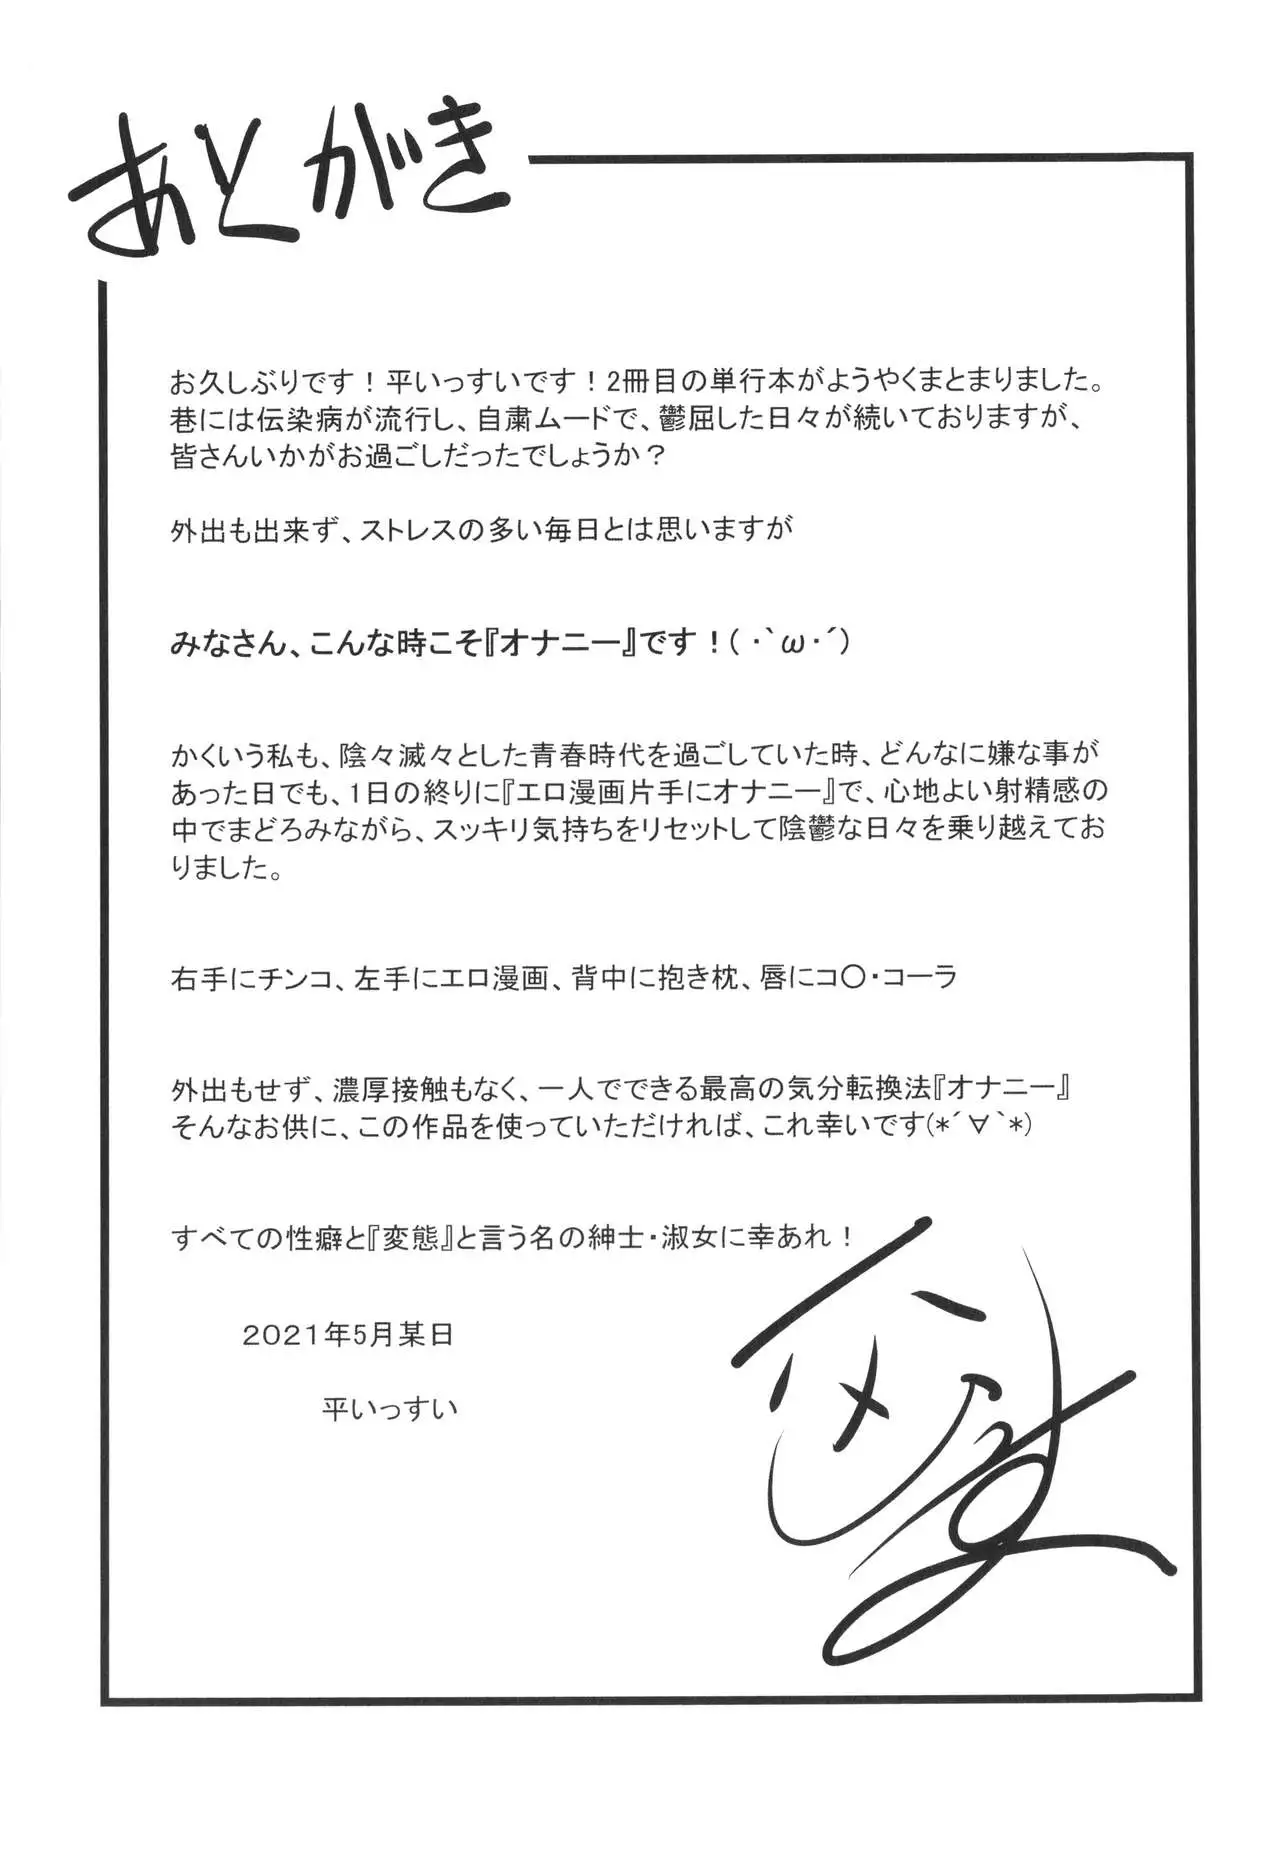 あとがき
お久しぶりです！平いっすいです！2冊目の単行本がようやくまとまりました。
巷には伝染病が流行し、自粛ムードで、鬱屈した日々が続いておりますが、
皆さんいかがお過ごしだったでしょうか？
外出も出来ず、ストレスの多い毎日とは思いますが
みなさん、こんな時こそ『オナニー』です！( ･`ω･´)
かくいう私も、陰々滅々とした青春時代を過ごしていた時、どんなに嫌な事が
あった日でも、1日の終りに『エロ漫画片手にオナニー』で、心地よい射精感の
中でまどろみながら、スッキリ気持ちをリセットして陰鬱な日々を乗り越えてお
りました。
右手にチンコ、左手にエロ漫画、背中に抱き枕、唇にコ〇・コーラ
外出もせず、濃厚接触もなく、一人でできる最高の気分転換法『オナニー』
そんなお供に、この作品を使っていただければ、これ幸いです(*´∀`*)
すべての性癖と『変態』と言う名の紳士・淑女に幸あれ！
2021年5月某日
平いっすい